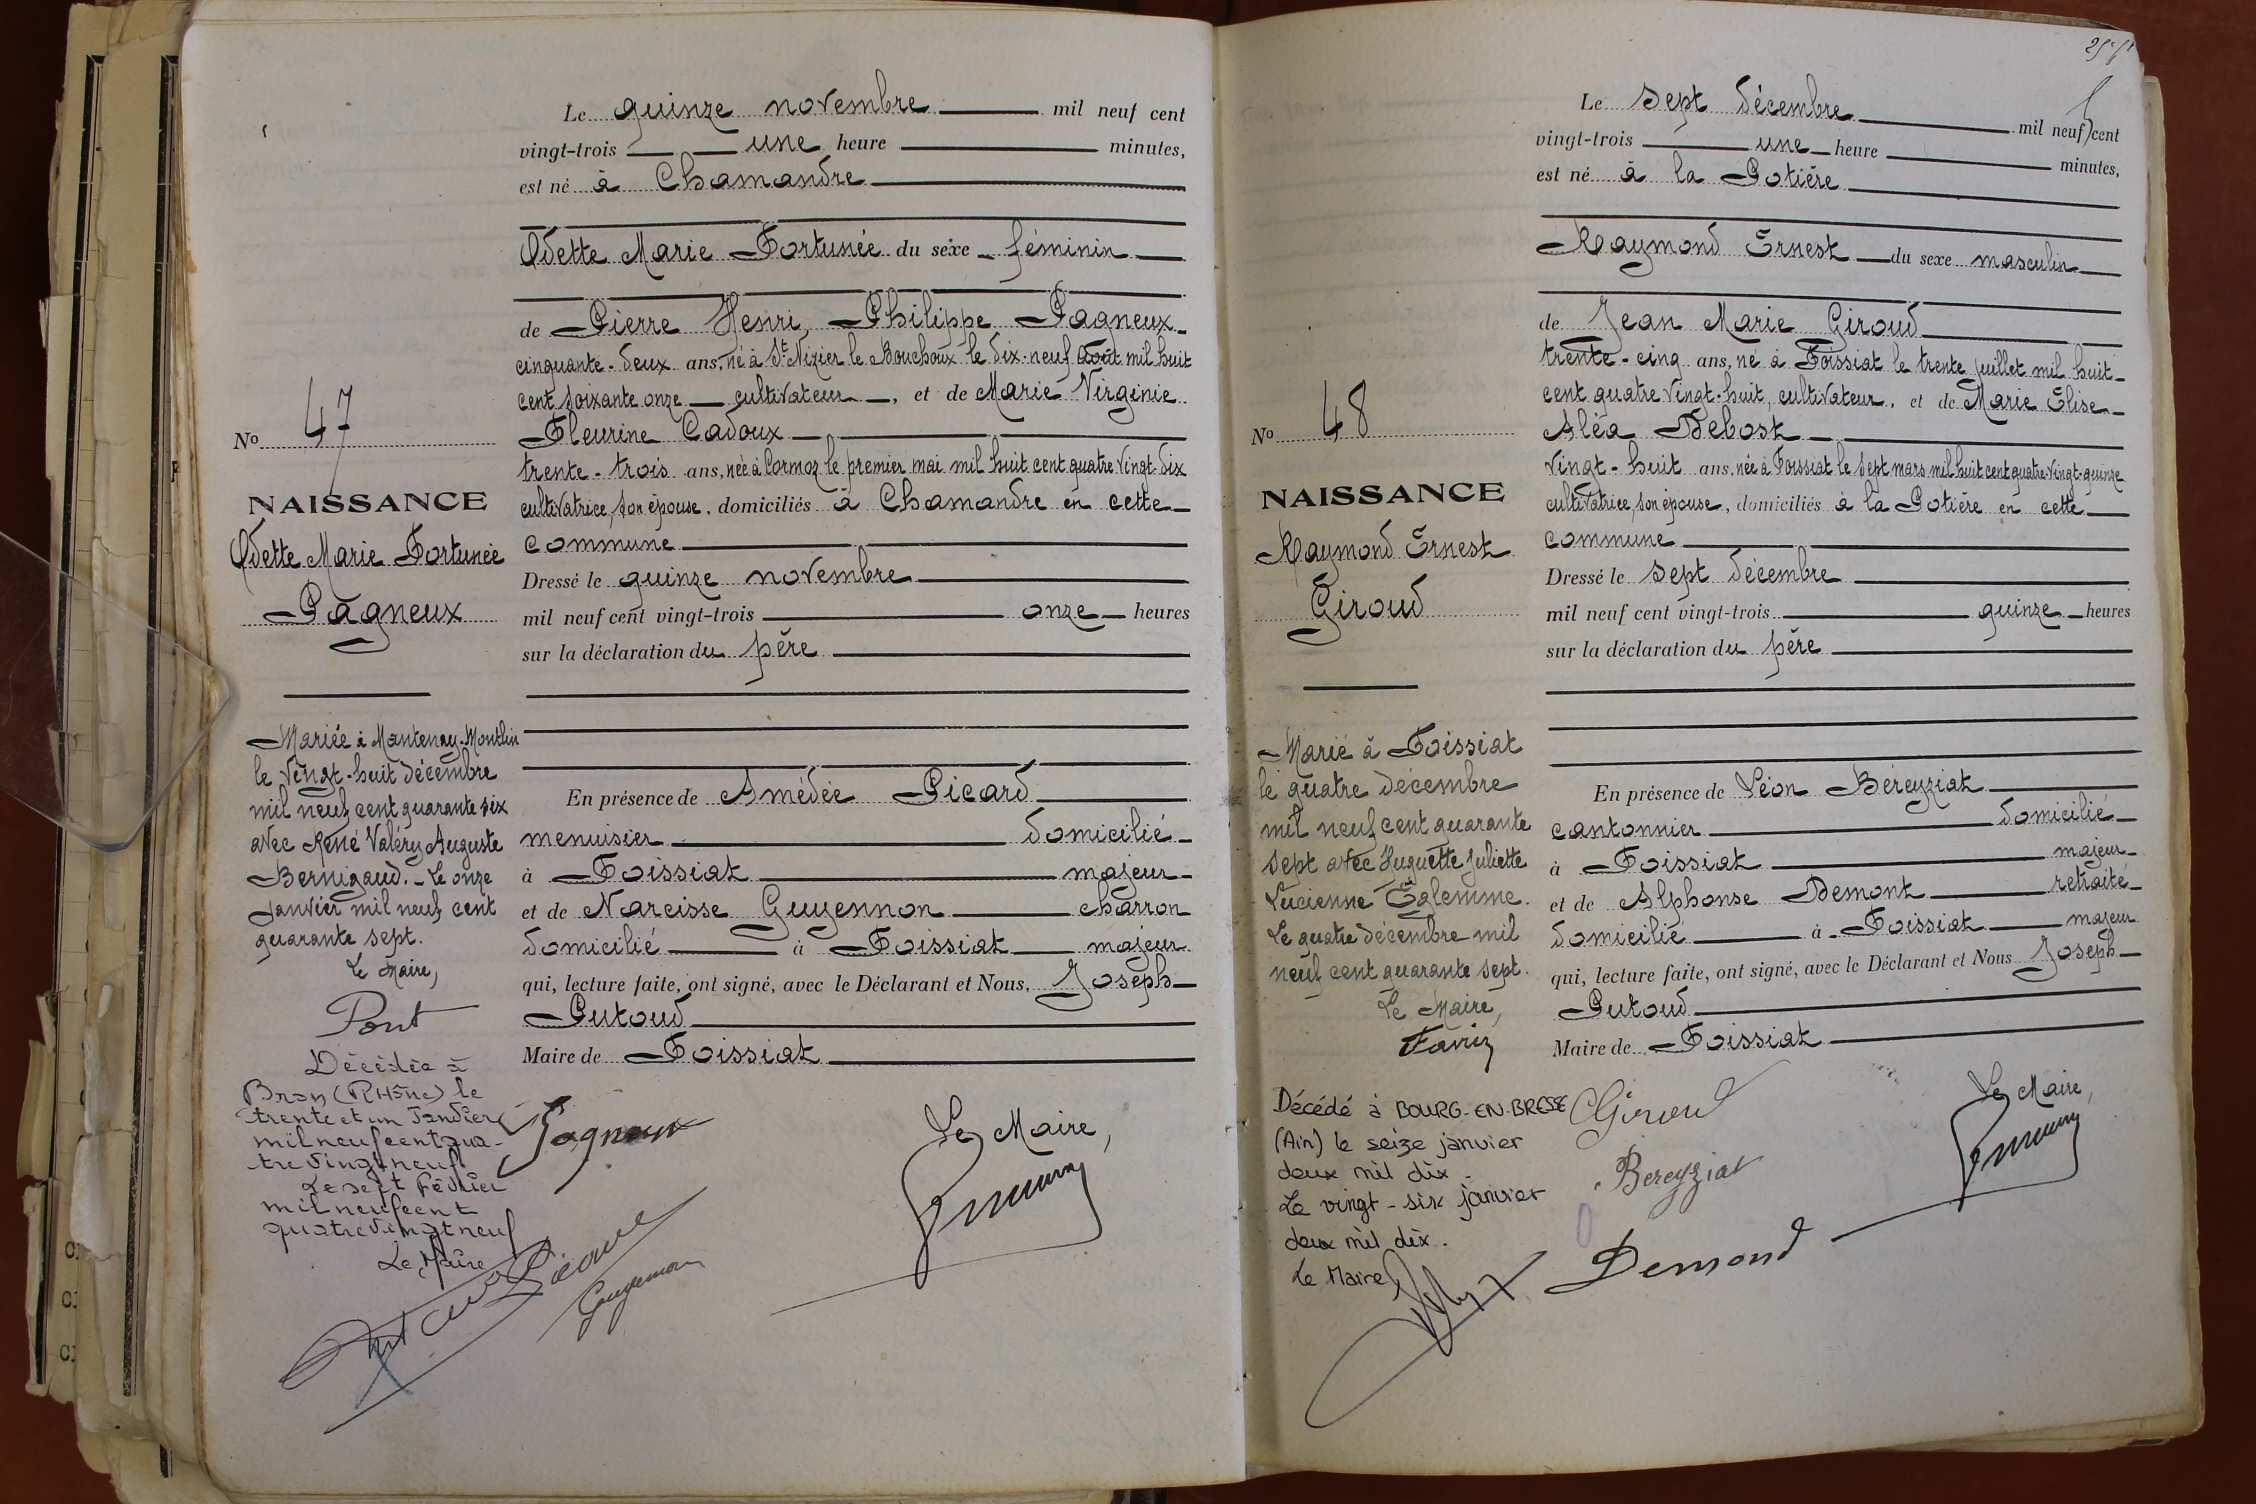 Le quinze novembre mil neuf cent
vingt-trois une heure minutes,
est né à Chamandre
Odette Marie Fortunée du sexe féminin
de Pierre Henri Philippe Pagneux
cinquante-deux ans, né à St Nizier le Bouchoux le dix-neuf août mil huit
cent soixante onze cultivateur, et de Marie Virginie
Fleurine Cadoux
trente-trois ans, née à Cormoz le premier mai mil huit cent quatre vingt-dix
cultivatrice, son épouse, domiciliés à Chamandre en cette
commune
Dressé le quinze novembre
mil neuf cent vingt-trois onze heures
sur la déclaration du père
En présence de Amédée Picard
menuisier domicilié
à Foissiat majeur
et de Narcisse Guyennon charron
domicilié à Foissiat majeur
qui, lecture faite, ont signé, avec le Déclarant et Nous, Joseph
Putoud
Maire de Foissiat
Le Maire,
No 47
NAISSANCE
Odette Marie Fortunée
Pagneux
Mariée à Mantenay-Montlin
le vingt-huit décembre
mil neuf cent quarante six
avec René Valéry Auguste
Bernigaud. - Le onze
janvier mil neuf cent
quarante sept.
Le Maire,
Pont
Décédée à
Bron (Rhône) le
trente et un Janvier
mil neuf cent qua-
tre vingt neuf
Le sept Février
mil neuf cent
quatre vingt neuf
Le Maire
Pagneux
Guyennon
Le sept décembre mil neuf cent
vingt-trois une heure minutes,
est né à la Potière
Raymond Ernest du sexe masculin
de Jean Marie Giroud
trente-cinq ans, né à Foissiat le trente juillet mil huit
cent quatre vingt-huit, cultivateur, et de Marie Elise
Aléa Debost
vingt-huit ans, née à Foissiat le sept mars mil huit cent quatre-vingt-quinze
cultivatrice, son épouse, domiciliés à la Potière en cette
commune
Dressé le sept décembre
mil neuf cent vingt-trois quinze heures
sur la déclaration du père
En présence de Léon Béreyziat
cantonnier domicilié
à Foissiat majeur
et de Alphonse Demont retraité
domicilié à Foissiat majeur
qui, lecture faite, ont signé, avec le Déclarant et Nous Joseph
Putoud
Maire de Foissiat
Le Maire,
No 48
NAISSANCE
Raymond Ernest
Giroud
Marié à Foissiat
le quatre décembre
mil neuf cent quarante
sept avec Huguette Juliette
Lucienne
Le quatre décembre mil
neuf cent quarante sept.
Le Maire,
Décédé à BOURG-EN-BRESSE
(Ain) le seize janvier
deux mil dix.
Le vingt-six janvier
deux mil dix.
Le Maire
Giroud
Bereyziat
Demond